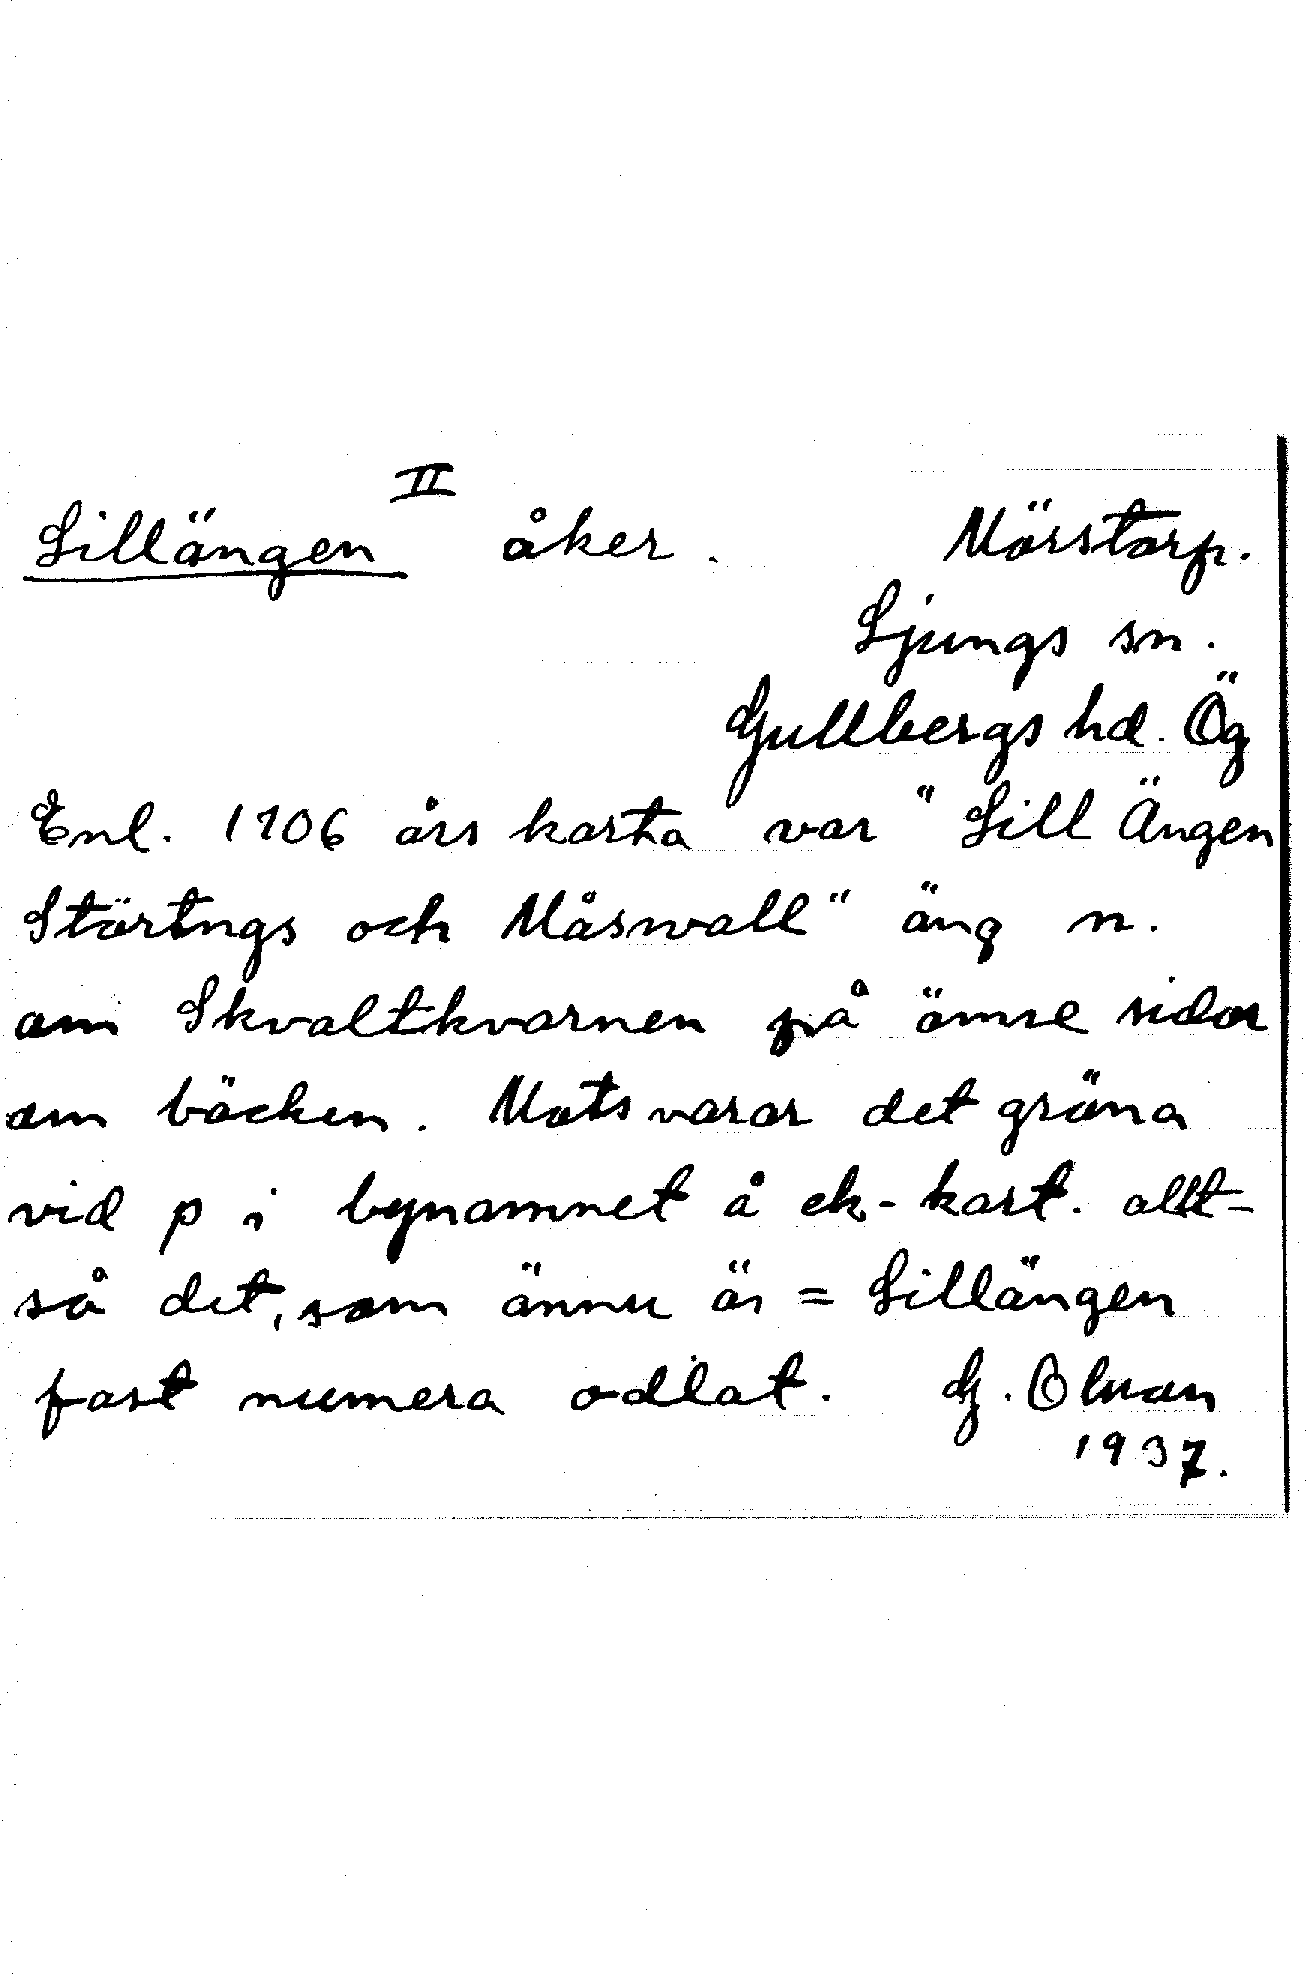 II
Lillängen åker. Mörstorp.
Ljungs sn.
Gullbergs hd. Ög
Enl. 1706 års karta var "Lill Ängen
Störtngs och Måswall" äng n.
om Skvaltkvarnen på ömse sidor
om bäcken. Motsvarar det gröna
vid p i bynamnet å ek-kart. allt-
så det, som ännu är = Lillängen
fast numera odlat. G. Olsson
1937.